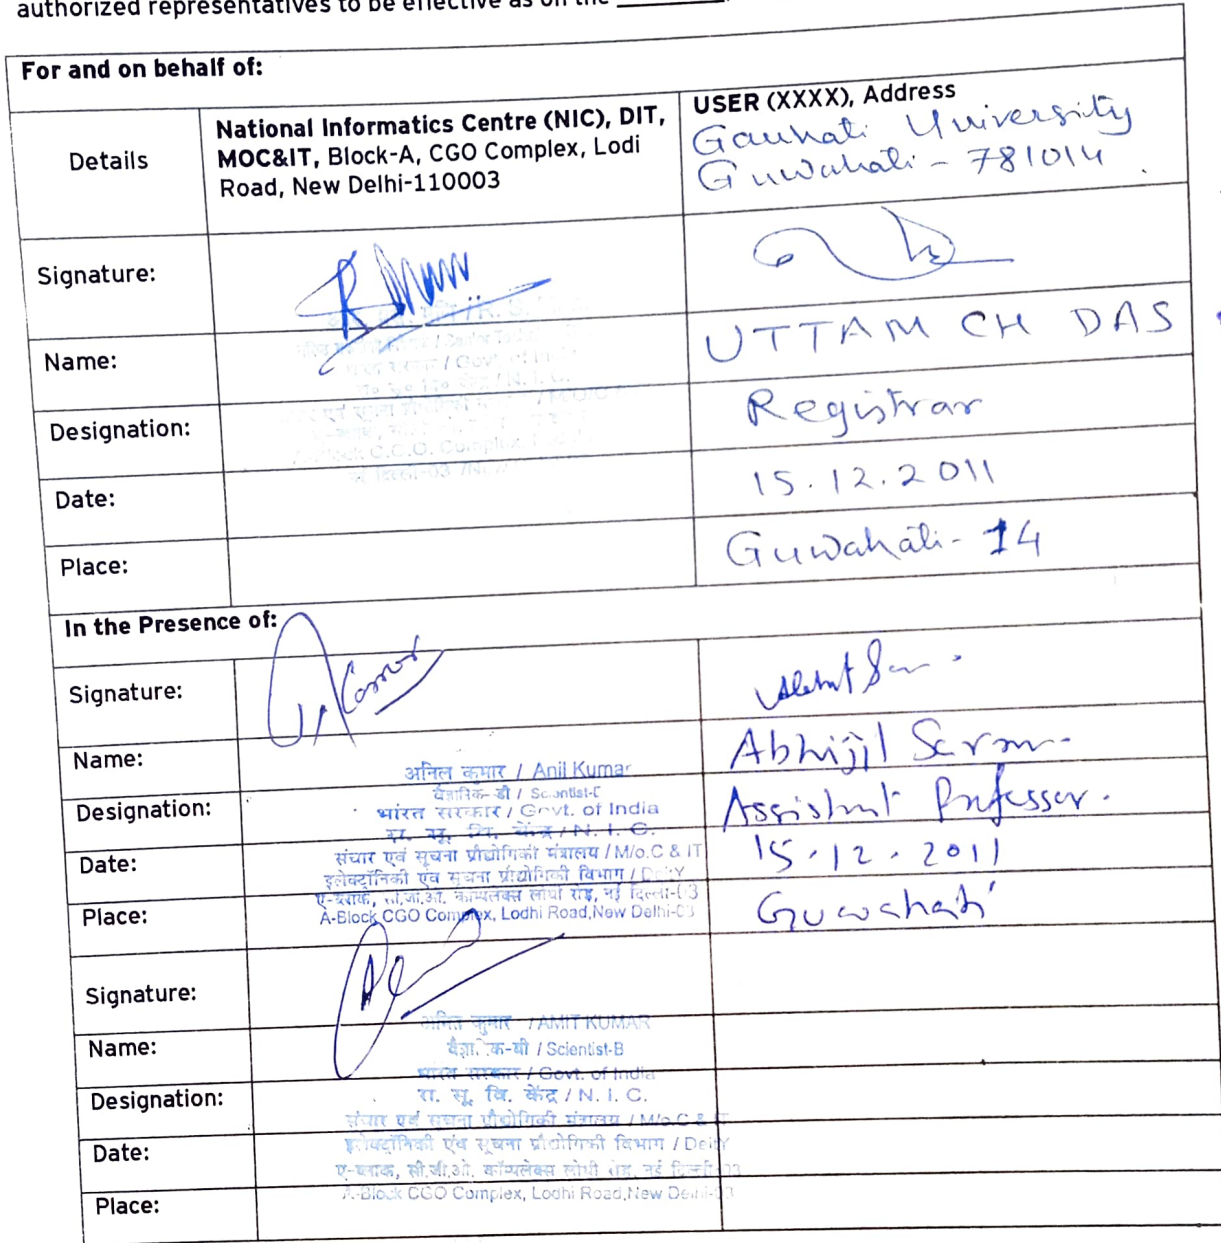 authorized representatives to be effective as on the
For and on behalf of:
Details
National Informatics Centre (NIC), DIT,
MOC&IT, Block-A, CGO Complex, Lodi
Road, New Delhi-110003
USER (XXXX), Address
Gauhati University
Guwahati - 781014
Signature:
Name:
UTTAM CH DAS
Designation:
Registrar
Date:
15.12.2011
Place:
Guwahati- 14
In the Presence of:
Signature:
Name:
अनिल कुमार / Anil Kumar
Abhijit
Designation:
भारत सरकार / Govt. of India
Assistant Professor.
रा. सू. वि. केंद्र / N. I. C.
Date:
संचार एवं सूचना प्रौद्योगिकी मंत्रालय / M/o.C & IT
15.12.2011
इलेक्ट्रॉनिकी एंव सूचना प्रौद्योगिकी विभाग / DeitY
Place:
A-Block CGO Complex, Lodhi Road,New Delhi-03
Guwahati
Signature:
अमित कुमार / AMIT KUMAR
Name:
/ Scientist-B
भारत सरकार / Govt. of India
Designation:
रा. सू. वि. केंद्र / N. I. C.
संचार एवं सूचना प्रौद्योगिकी मंत्रालय / M/o.C &
Date:
इलेक्ट्रॉनिकी एंव सूचना प्रौद्योगिकी विभाग / DeitY
ए-ब्लाक, सी.जी.ओ. कॉम्पलेक्स लोधी रोड, नई दिल्ली-03
Place:
A-Block CGO Complex, Lodhi Road,New Delhi-03